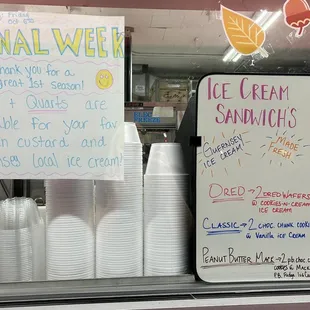 Friday
NAL WEEK
hank you for a
great 1st season!
+ Quarts are
ble for your fav
n custard and
nsey local ice cream!
ICE CREAM
SANDWICH'S
GUERNSEY
ICE CREAM
MADE
FRESH
OREO → 2 OREO WAFERS
COOKIES-N-CREAM
ICE CREAM
CLASSIC → 2 CHOC. CHUNK COOKIES
Vanilla ICE CREAM
PEANUT BUTTER MACK → 2 pb choc
COOKIES & MACK
P.B. Fudge